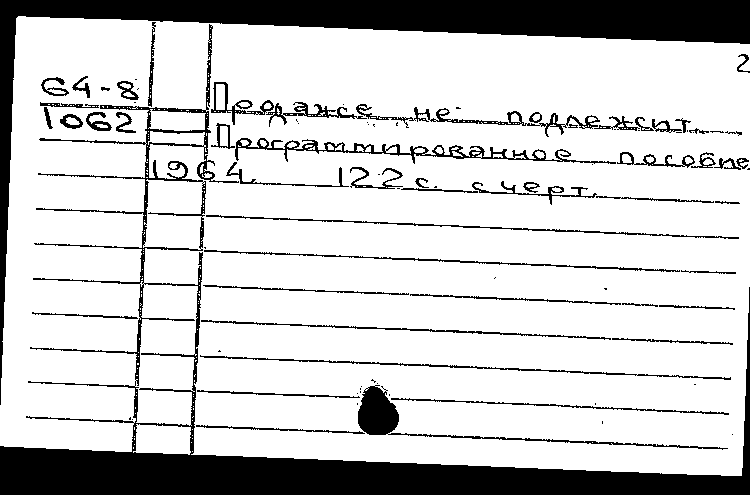 2
64-8 Продаже не подлежит.
1062 Программированное пособие
1964. 122 с. с черт.